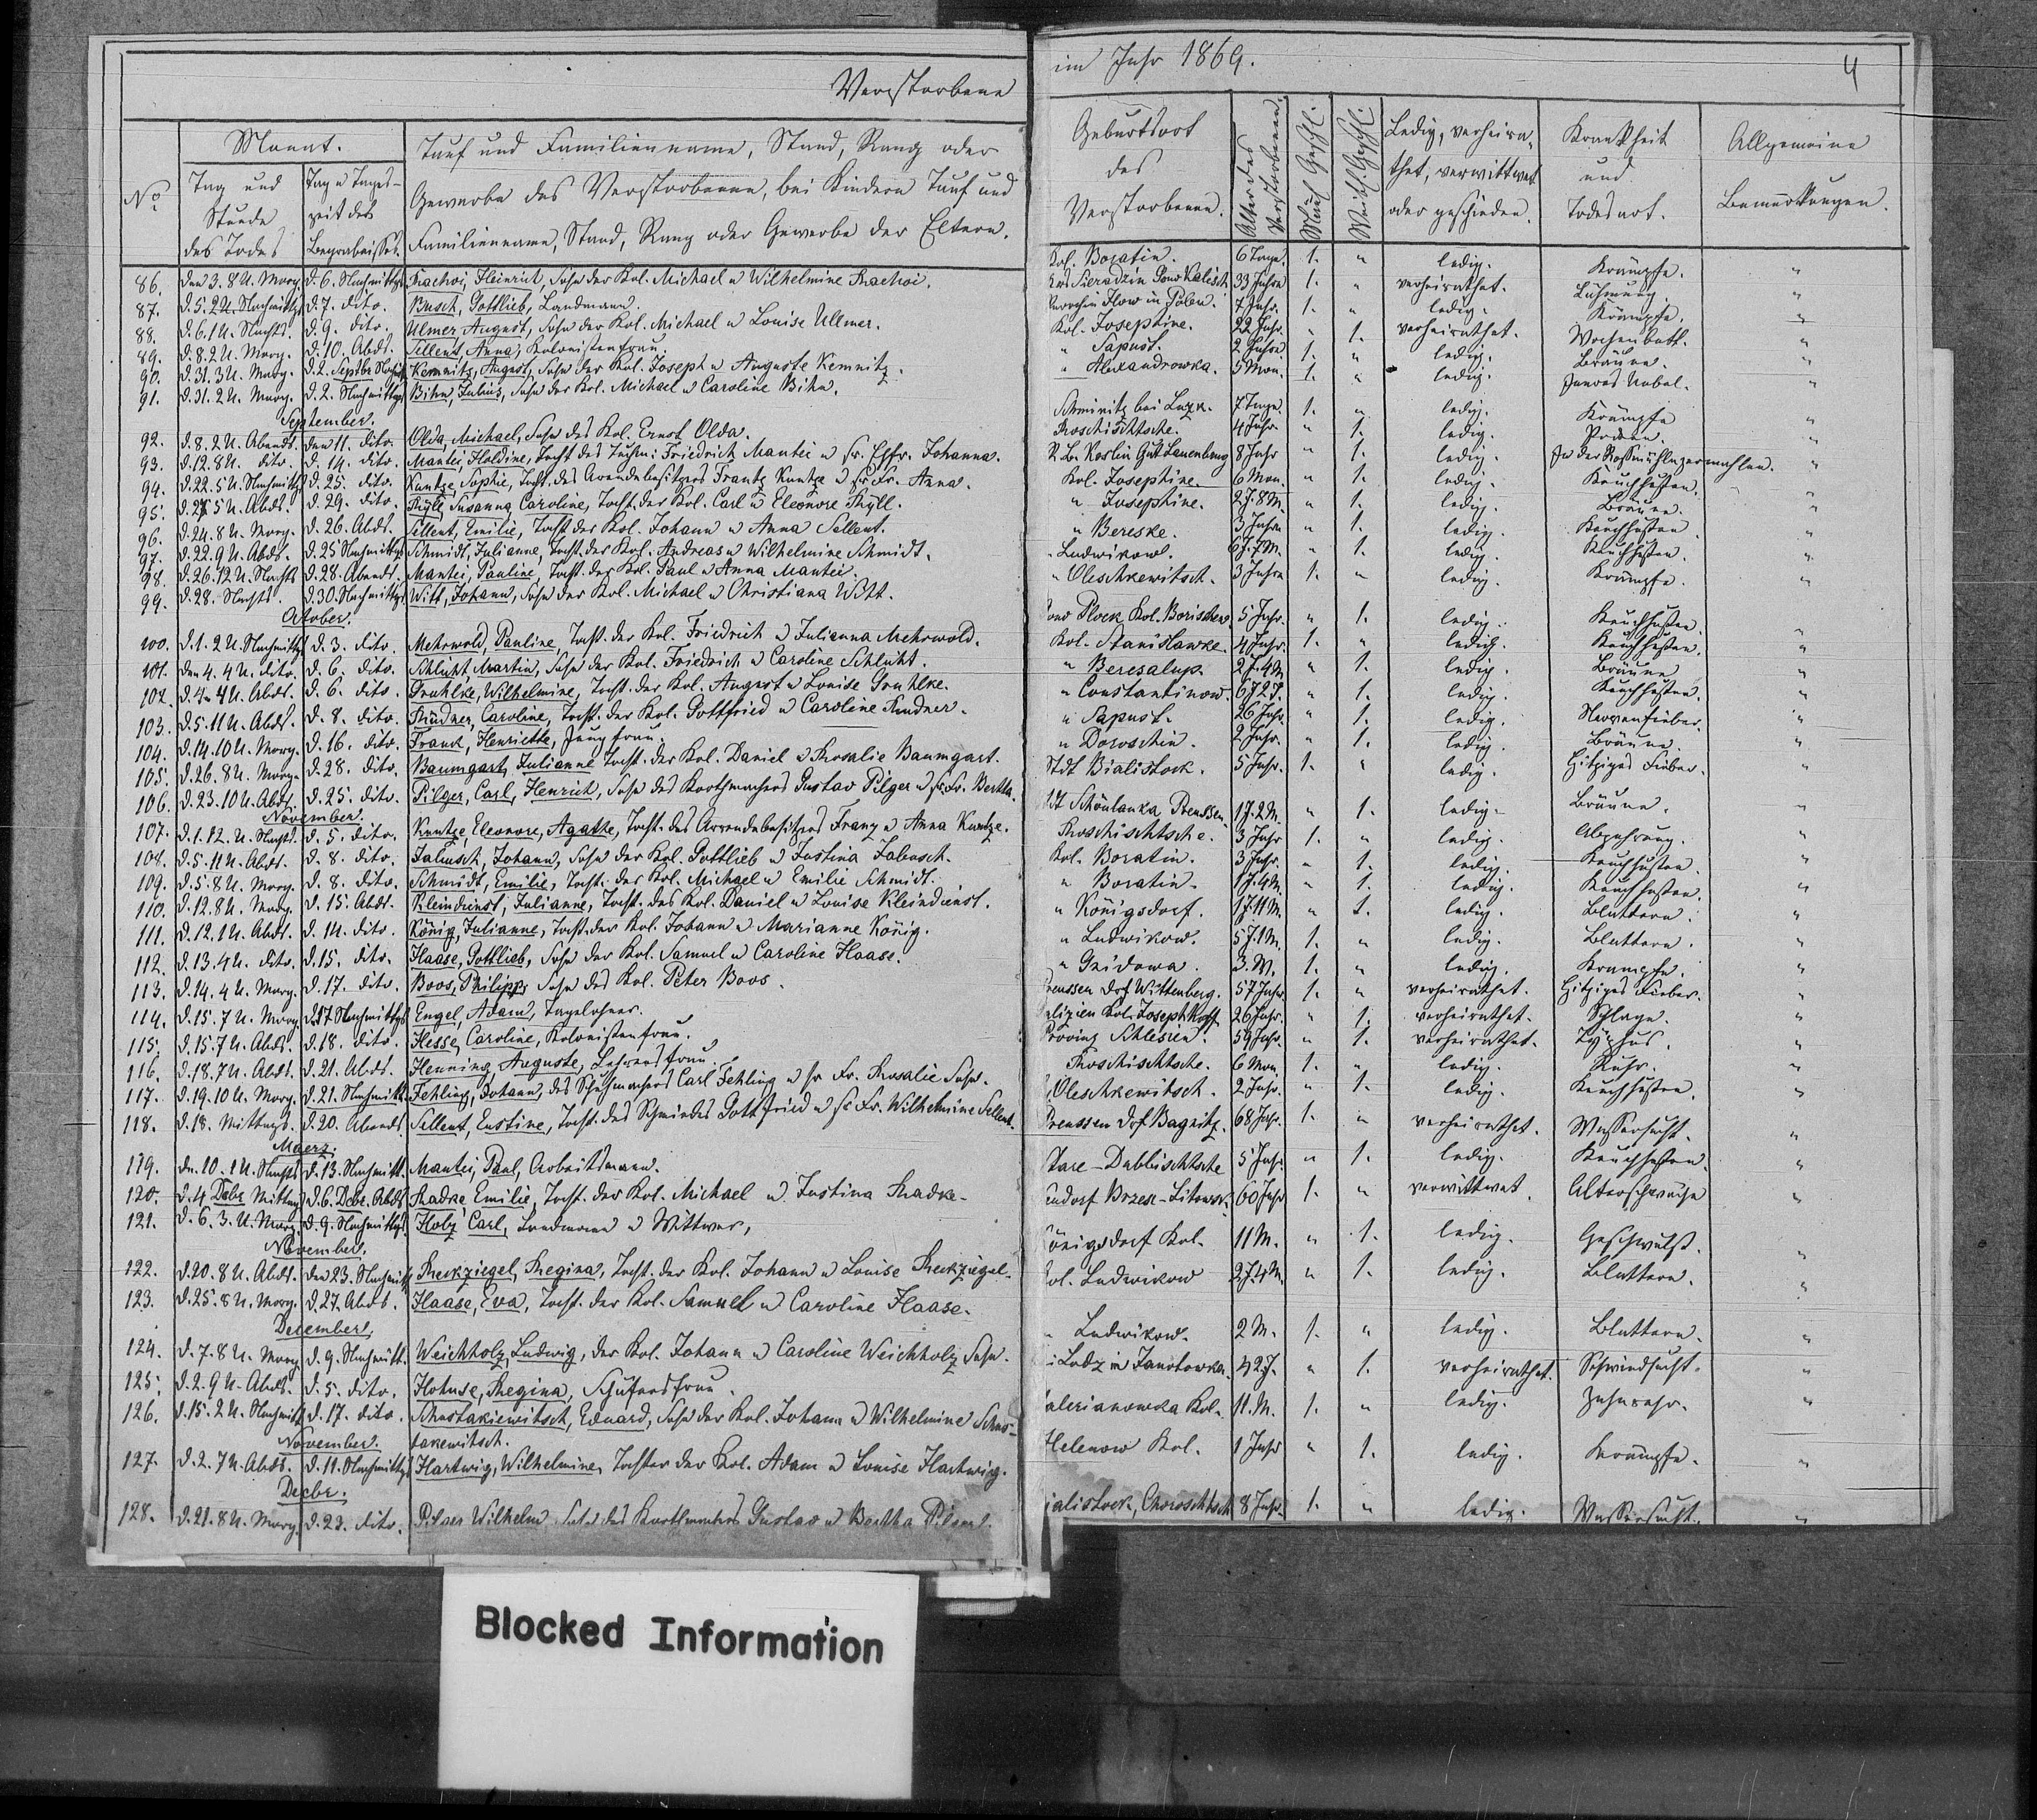 Verstorbene im Jahr 1869. 4
Monat.
No
Tag und Stunde des Todes
Tag u Tages-zeit des Begräbnisses.
Tauf und Familienname, Stand, Rang oder
Gewerbe des Verstorbenen, bei Kindern Tauf und
Familienname, Stand, Rang oder Gewerbe der Eltern.
Geburtsort des Verstorbenen.
Alter des Verstorbenen.
Männl. Geschl.
Weibl. Geschl.
Ledig, verheira-thet, verwittwet oder geschieden.
Krankheit und Todesart.
Allgemeine Bemerkungen.
86. Den 3. 8 U. Morg. d. 6. Nachmittgs Rachoi, Heinrich, Sohn der Kol. Michael u Wilhelmine Rachoi. Kol. Boratin. 6 Tage. 1. " ledig. Krämpfe. "
87. d. 5. 2 U. Nachmittgs d. 7. dito. Busch, Gottlieb, Landmann. Sieradzin Gouv Kalisch 33 Jahre 1. " verheirathet. Lähmung. "
88. d. 6. 1 U. Nachts. d. 9. dito. Ulmer, August, Sohn der Kol. Michael u Louise Ullmer. Ilow in Polen. 7 Jahr. 1. " ledig. Krämpfe. "
89. d. 8. 2 U. Morg. d. 10. Abds. Sellent, Anna, Kolonistenfrau. Kol. Josephine. 22 Jahr. " 1. verheirathet. Wochenbett. "
90. d. 31. 3 U. Morg. d. 2. Septbr Nachmitt Kemnitz, August, Sohn der Kol. Joseph u Auguste Kemnitz. " Sapust. 2 Jahre 1. " ledig. Bräune. "
91. d. 31. 2 U. Morg. d. 2. Nachmittgs Bihn, Julius, Sohn der Kol. Michael u Caroline Bihn. " Alexandrowka. 5 Mon. 1. " ledig. Inneres Uebel. "
September.
92. d. 8. 2 U. Abends. den 11. dito. Olda, Michael, Sohn des Kol. Ernst Olda. bei Luzk. 7 Tage. 1. " ledig. Krämpfe "
93. d. 12. 8 U. dito. d. 14. dito. Mantei, Holdine, Tocht. des Friedrich Mantei u sr. Ehfr. Johanna. Roschischtsche. 4 Jahr. " 1. ledig. Pocken. "
94. d. 22. 5 U. Nachmittgs d. 25. dito. Kuntze, Sophie, Tocht. des Arendebesitzers Frantz Kuntze u sr Fr. Anna. Gut Lauenburg 8 Jahr " 1. ledig. In der Roßmühle zermahlen. "
95. d. 27. 5 U. Abds. d. 29. dito. Thyll, Susanna Caroline, Tocht. der Kol. Carl u Eleonore Thyll. Kol. Josephine. 6 Mon. " 1. ledig. Keuchhusten. "
96. d. 24. 8 U. Morg. d. 26. Abds. Sellent, Emilie, Tocht. der Kol. Johann u Anna Sellent. " Josephine. 2 J. 8 M. " 1. ledig. Bräune. "
97. d. 22. 9 U. Abds. d. 25 Nachmittgs Schmidt, Julianne, Tocht. der Kol. Andreas u Wilhelmine Schmidt. " Bereske. 3 Jahre " 1. ledig. Keuchhusten "
98. d. 26. 12 U. Nachts d. 28. Abends. Mantei, Pauline, Tocht. der Kol. Paul u Anna Mantei. " Ludwikow. 6 J. 7 M. " 1. ledig. Keuchhusten. "
99. d. 28. Nachts. d. 30. Nachmittgs Witt, Johann, Sohn der Kol. Michael u Christiana Witt. " Oleschkewitsch. 3 Jahre 1. " ledig. Krämpfe. "
October.
100. d. 1. 2 U. Nachmittgs d. 3. dito. Mehrwold, Pauline, Tocht. der Kol. Friedrich u Julianna Mehrwold. Gouv Plock Kol. Borischew. 5 Jahr. " 1. ledig. Keuchhusten. "
101. den 4. 4 U. dito. d. 6. dito. Schlicht, Martin, Sohn der Kol. Friedrich u Caroline Schlicht. Kol. Stanislawke. 4 Jahr. 1. " ledig. Keuchhusten. "
102. d. 4. 4 U. Abds. d. 6. dito. Gruhlke, Wilhelmine, Tocht. der Kol. August u Louise Gruhlke. " Beresalup. 2 J. 4 M " 1. ledig. Bräune "
103. d. 5. 11 U. Abds. d. 8. dito. Rudner, Caroline, Tocht. der Kol. Gottfried u Caroline Rudner. " Constantinow. " 1. ledig. Keuchhusten. "
104. d. 14. 10 U. Morg. d. 16. dito. Frank, Henriette, Jungfrau. " Sapust. 26 Jahr. " 1. ledig. Nervenfieber. "
105. d. 26. 8 U. Morg. d. 28. dito. Baumgart, Julianne, Tocht. der Kol. Daniel u Rosalie Baumgart. " Doroschin. 2 Jahr. " 1. ledig. Bräune. "
106. d. 23. 10 U. Abds. d. 25. dito. Pilger, Carl, Henrich, Sohn des Korbmachers Gustav Pilger u sr Fr. Bertha. Stdt Bialistock. 5 Jahr. 1. " ledig. Hitziges Fieber. "
November.
107. d. 1. 12. U. Nachts. d. 5. dito. Kuntze, Eleonore, Agathe, Tocht. des Arrendebesitzers Franz u Anna Kuntze. Schönlanka Preussen. 1 J. 2 M. " 1. ledig. Bräune. "
108. d. 5. 11 U. Abds. d. 8. dito. Jabusch, Johann, Sohn der Kol. Gottlieb u Justina Jabusch. Roschischtsche. 3 Jahr 1. " ledig. Abzehrung. "
109. d. 5. 8 U. Morg. d. 8. dito. Schmidt, Emilie, Tocht. der Kol. Michael u Emilie Schmidt. Kol. Boratin. 3 Jahr. " 1. ledig. Keuchhusten. "
110. d. 12. 8 U. Morg. d. 15. Abds. Kleindienst, Julianne, Tocht. des Kol. Daniel u Louise Kleindienst. " Boratin. 1 J. 4 M. " 1. ledig. Keuchhusten. "
111. d. 12. 1 U. Abds. d. 14. dito. König, Julianne, Tocht. der Kol. Johann u Marianne König. " Königsdorf. 1 J. 11 M. " 1. ledig. Blattern. "
112. d. 13. 4 U. dito. d. 15. dito. Haase, Gottlieb, Sohn der Kol. Samuel u Caroline Haase. " Ludwikow. 5 J. 1 M. 1. " ledig. Blattern. "
113. d. 14. 4 U. Morg. d. 17. dito. Boos, Philipp, Sohn des Kol. Peter Boos. " Gnidawa. 3. W. 1. " ledig. Krämpfe. "
114. d. 15. 7 U. Morg. d. 17 Nachmittgs Engel, Adam, Tagelöhner. Preussen Drf Wittenberg. 57 Jahr. 1. " verheirathet. Hitziges Fieber. "
115. d. 15. 7 U. Abds. d. 18. dito. Hesse, Caroline, Kolonistenfrau. Galizien Kol. Josephkoff 26 Jahr. " 1. verheirathet. Schlage. "
116. d. 18. 7 U. Abds. d. 21. Abds. Henning, Auguste, Lehrersfrau. Provinz Schlesien. 59 Jahr. " 1. verheirathet. Typhus. "
117. d. 19. 10 U. Morg. d. 21. Nachmitt. Fehling, Johann, des Schuhmachers Carl Fehling u sr Fr. Rosalie Sohn. Roschischtsche. 6 Mon. 1. " ledig. Ruhr. "
118. d. 18. Mittags. d. 20. Abends. Sellent, Eustine, Tocht. des Schmiedes Gottfried u sr Fr. Wilhelmine Sellent. Oleschkewitsch. 2 Jahr. " 1. ledig. Keuchhusten. "
Maerz.
119. dn. 10. 1 U. Nachts d. 13. Nachmitt. Mantei, Paul, Arbeitsmann. Preussen Drf Bagnitz. 68 Jahr. 1. " verheirathet. Wassersucht. "
120. d. 4 Debr Mittag d. 6. Debr. Abds Radke, Emilie, Tocht. der Kol. Michael u Justina Radke. Stare-Dubbischtsche 5 Jahr " 1. ledig. Keuchhusten. "
121. d. 6. 3. U. Morg. d. 9. Nachmittgs. Holz, Carl, Landmann u Wittwer, Brzesc-Litowsk. 60 Jahr 1. " verwittwet. Altersschwäche "
November.
122. d. 20. 8 U. Abds. den 23. Nachmitt Reckziegel, Regina, Tocht. der Kol. Johann u Louise Reckziegel. Königsdorf Kol. 11 M. " 1. ledig. Geschwulst. "
123. d. 25. 8 U. Morg. d. 27. Abds. Haase, Eva, Tocht. der Kol. Samuel u Caroline Haase. Kol. Ludwikow 2 J. 4 M. " 1. ledig. Blattern. "
December.
124. d. 7. 8 U. Morg d. 9. Nachmitt. Weichholz, Ludwig, der Kol. Johann u Caroline Weichholz Sohn. " Ludwikow. 2 M. 1. " ledig. Blattern. "
125. d. 2. 9 U. Abds. d. 5. dito. Hohnse, Regina, Schäfersfrau. Lodz in Janotowka. 42 J. " 1. verheirathet. Schwindsucht. "
126. d. 15. 2 U. Nachmitt d. 17. dito. Schustakiewitsch, Eduard, Sohn der Kol. Johann u Wilhelmine Schus-
takewitsch. Valerianowka Kol. 11. M. 1. " ledig. Zahnruhr. "
November.
127. d. 2. 7 U. Abds. d. 11. Nachmittgs Hartwig, Wilhelmine, Tochter der Kol. Adam u Louise Hartwig. Helenow Kol. 1 Jahr " 1. ledig. Krämpfe. "
Decbr.
128. d. 21. 8 U. Morg. d. 23. dito. Pilger Wilhelm Sohn des Korbmachers Gustav u Bertha Pilger. Bialistock, Choroschtsch 8 Jahr. 1. " ledig. Wassersucht. "
Blocked Information